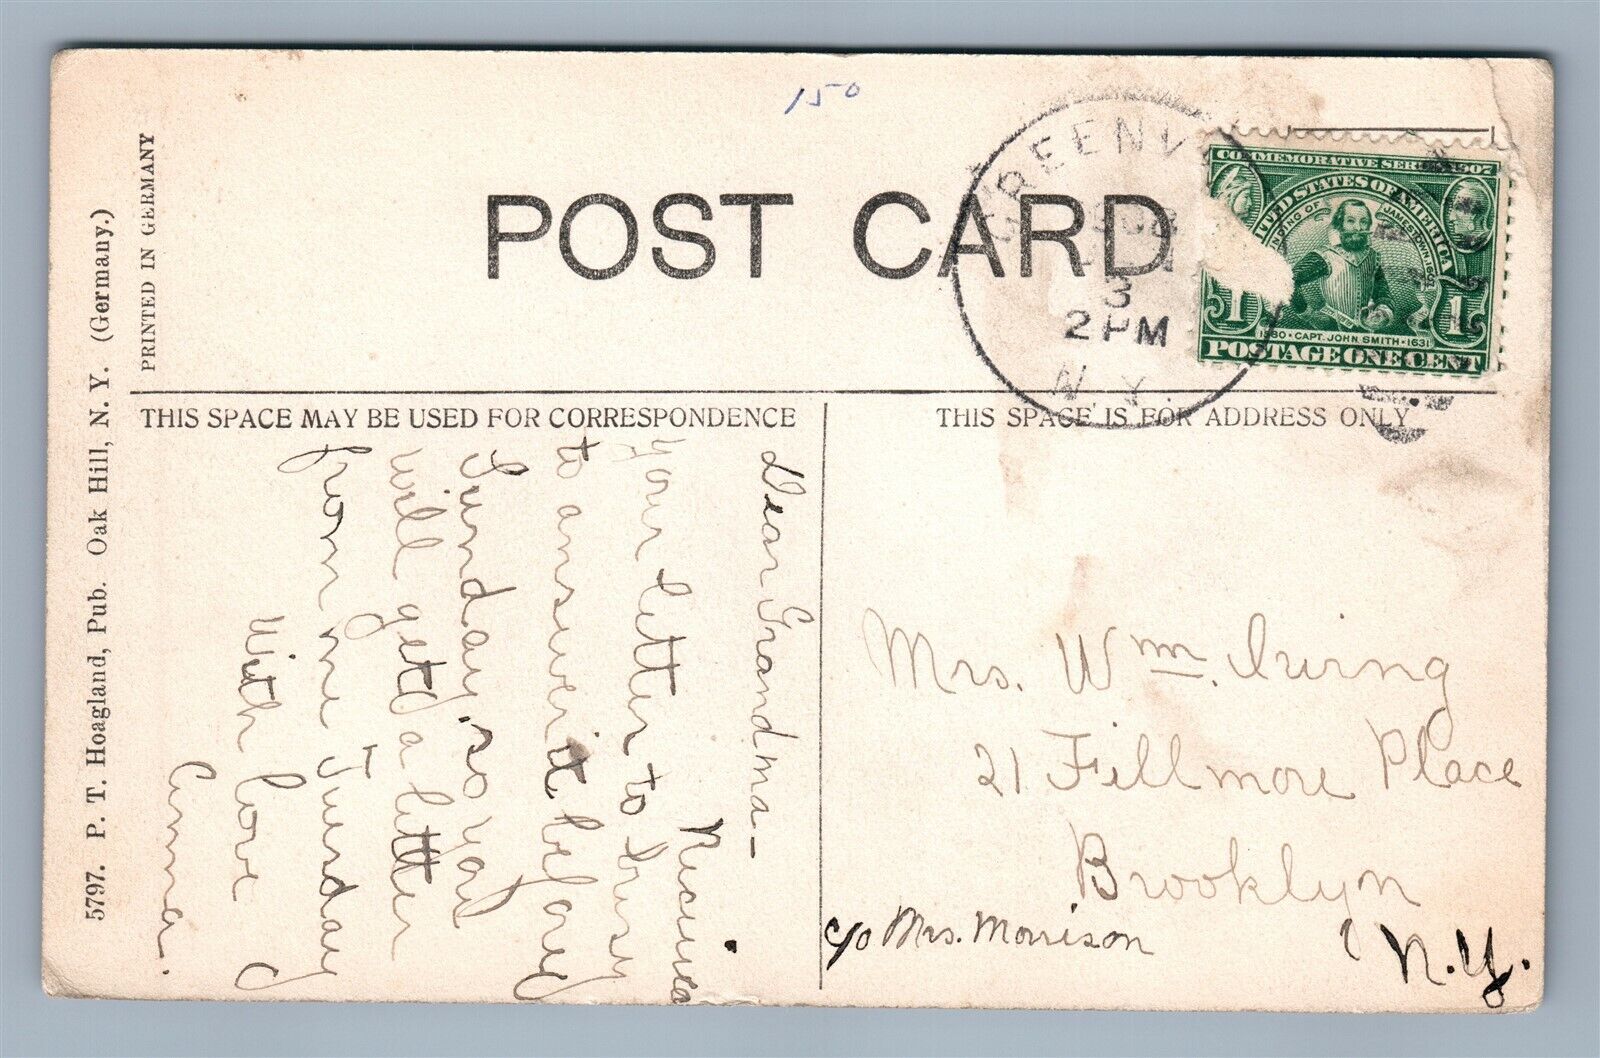 150
POST CARD
GREENV
3
2 PM
N.Y.
COMMEMORATIVE SERIES 1907
UNITED STATES OF AMERICA
FOUNDING OF JAMESTOWN 1607
1580 • CAPT. JOHN SMITH • 1631
1 1
POSTAGE ONE CENT
PRINTED IN GERMANY
5797. P. T. Hoagland, Pub. Oak Hill, N. Y. (Germany.)
THIS SPACE MAY BE USED FOR CORRESPONDENCE
THIS SPACE IS FOR ADDRESS ONLY
Dear Grandma—
Recived
your letter to busy
to answer it before
Sunday, so you
will get a letter
from me Tuesday
With love
Anna.
Mrs. Wm. Irving
21 Fillmore Place
Brooklyn
c/o Mrs. Morrison
N.Y.